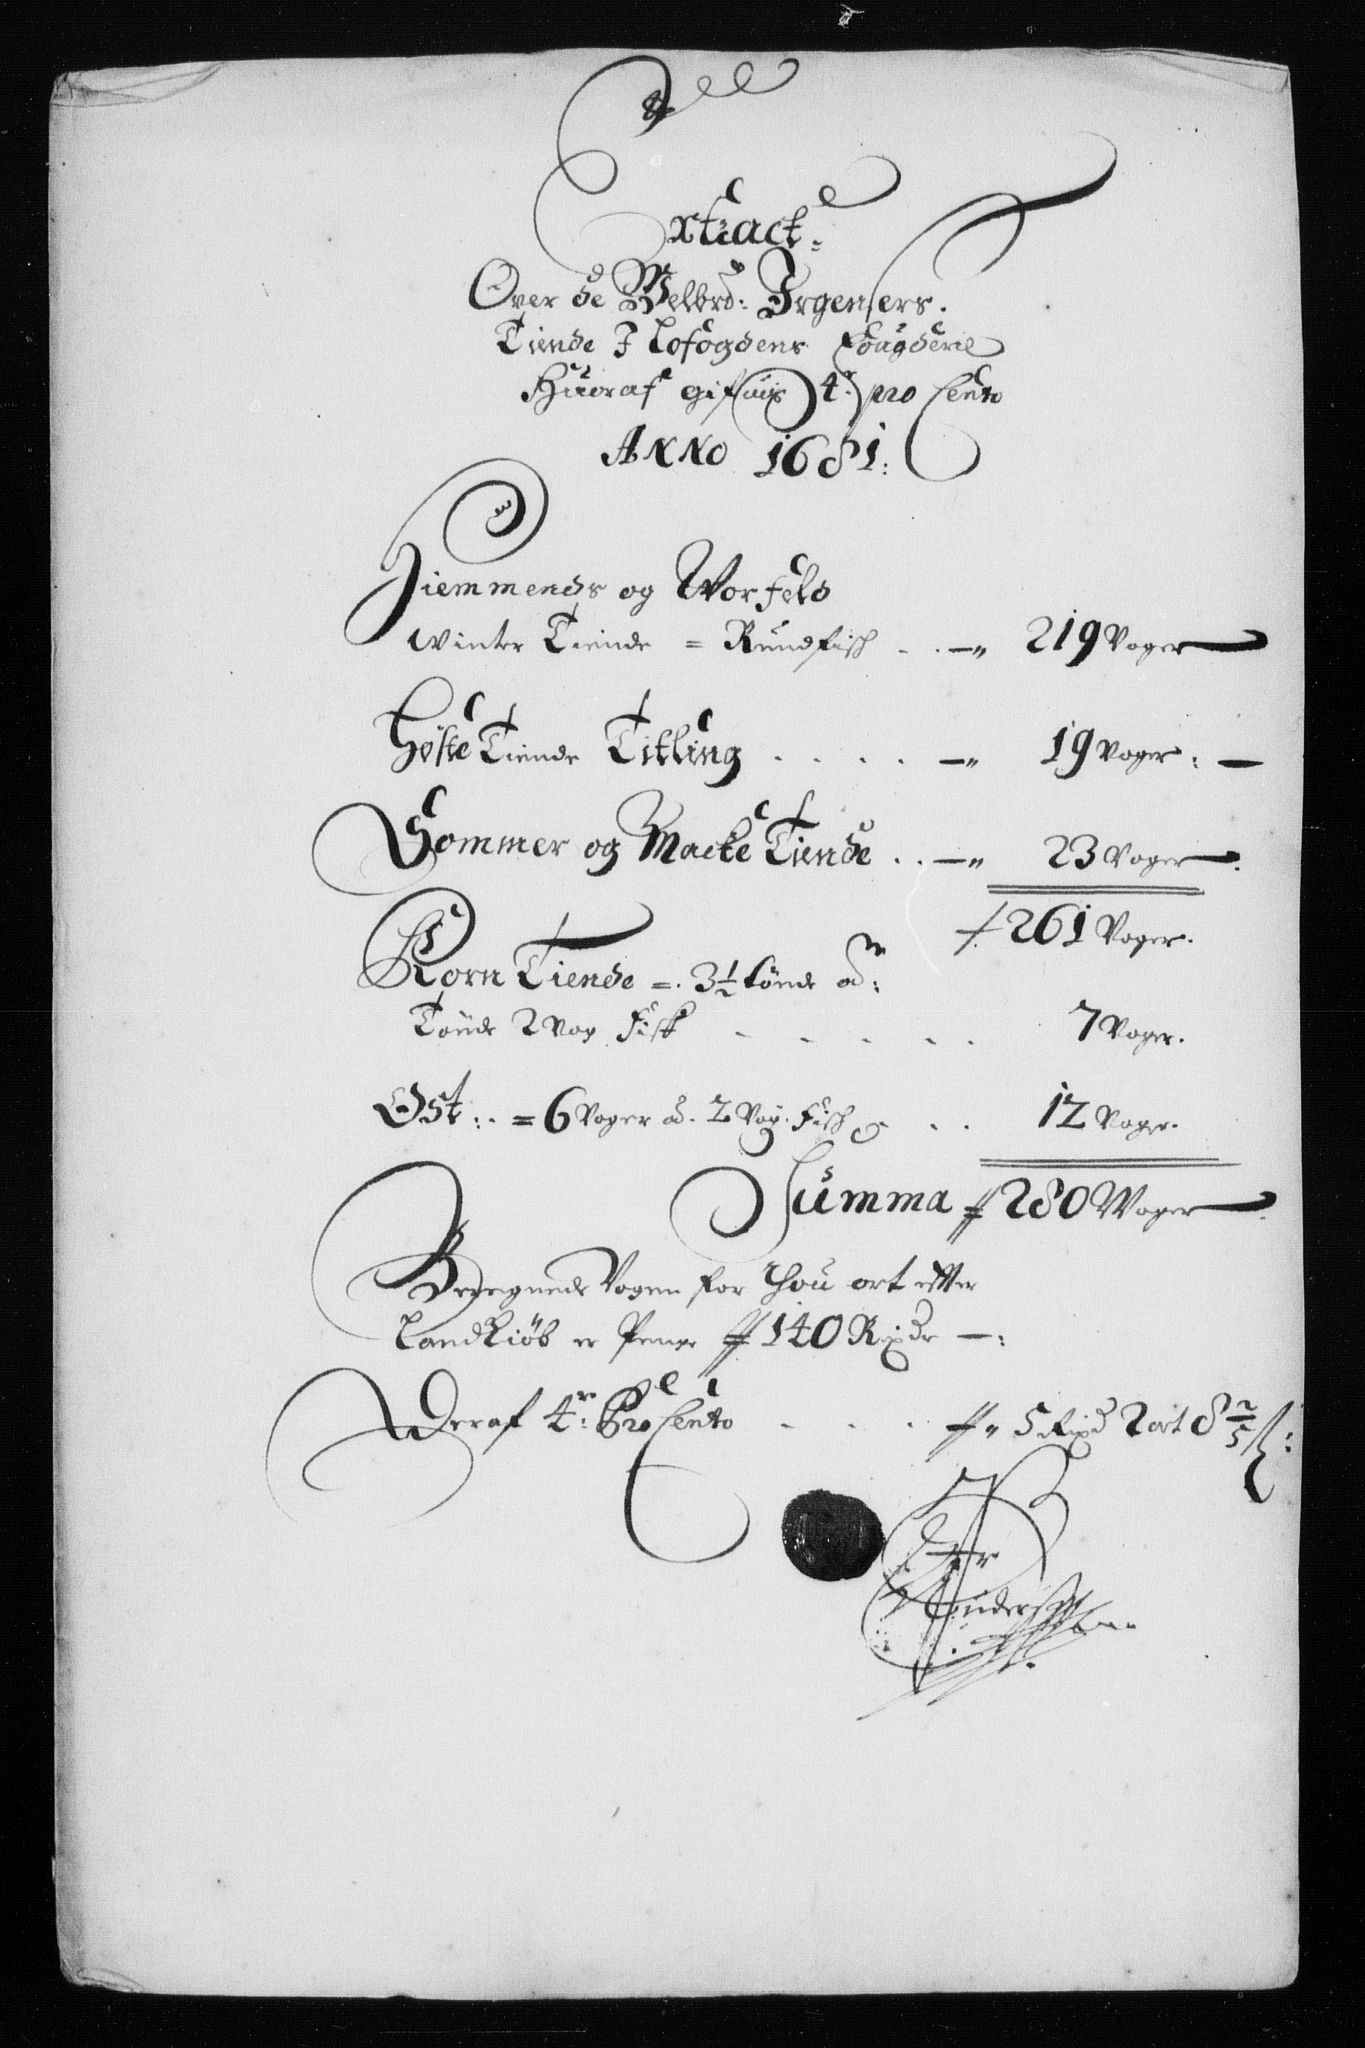 Extract
Over de Welbrd: Irgensers.
Tiende I Lofogdens Fougderie
Huoraf gifuis 4r pro Cento
ANNO 1681:
Hiemmends og Worfeld
winter Tiende = Rundfisch . . — 219 Voger
Høste Tiende Titling . . . . — 19 Voger: —
Sommer og Macke Tiende . . — 23 Voger.
261 Voger.
Korn Tiende = 3 1/2 tønde ad:
Tønde 2 Vog Fisk . . . . . 7 Voger.
Ost: = 6 Voger ad. 2 Vog. Fisch . . 12 Voger.
Summa 280 Woger
Beregnede Vogen for thou ort efter
Landkiøb er Penge 140 Rixdr —:
Deraf 4r: Pro Cento . . . 5 Rixd 2 ort 8 2/5 ß:
Peder
Andersen